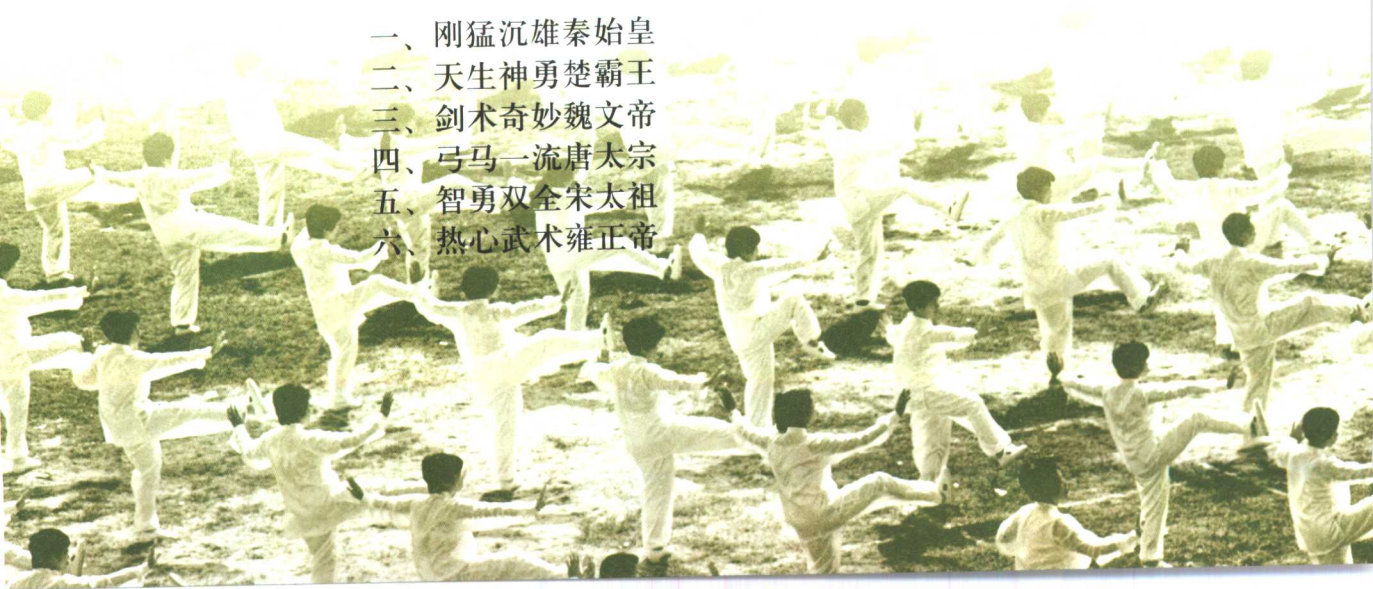 一、刚猛沉雄秦始皇
二、天生神勇楚霸王
三、剑术奇妙魏文帝
四、弓马一流唐太宗
五、智勇双全宋太祖
六、热心武术雍正帝